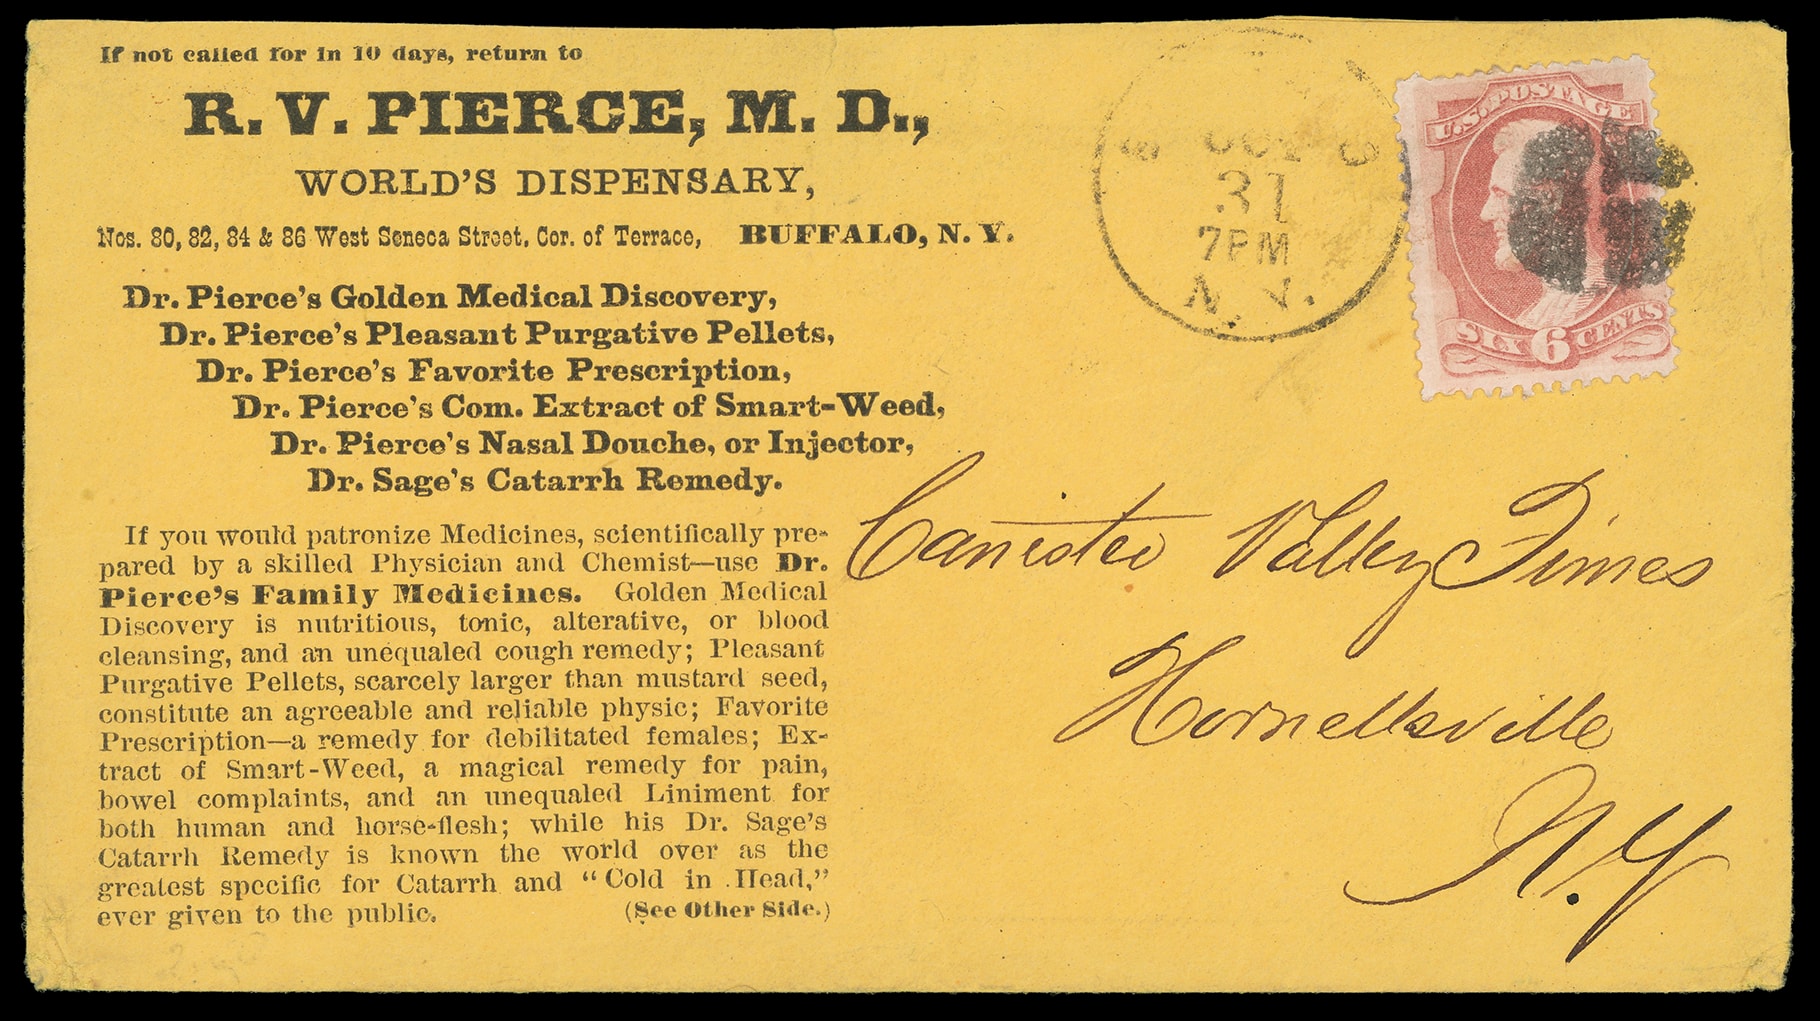 If not called for in 10 days, return to
R. V. PIERCE, M. D.,
WORLD'S DISPENSARY,
Nos. 80, 82, 84 & 86 West Seneca Street, Cor. of Terrace, BUFFALO, N. Y.
Dr. Pierce's Golden Medical Discovery,
Dr. Pierce's Pleasant Purgative Pellets,
Dr. Pierce's Favorite Prescription,
Dr. Pierce's Com. Extract of Smart-Weed,
Dr. Pierce's Nasal Douche, or Injector,
Dr. Sage's Catarrh Remedy.
If you would patronize Medicines, scientifically pre-
pared by a skilled Physician and Chemist—use Dr.
Pierce's Family Medicines. Golden Medical
Discovery is nutritious, tonic, alterative, or blood
cleansing, and an unequaled cough remedy; Pleasant
Purgative Pellets, scarcely larger than mustard seed,
constitute an agreeable and reliable physic; Favorite
Prescription—a remedy for debilitated females; Ex-
tract of Smart-Weed, a magical remedy for pain,
bowel complaints, and an unequaled Liniment for
both human and horse-flesh; while his Dr. Sage's
Catarrh Remedy is known the world over as the
greatest specific for Catarrh and "Cold in Head,"
ever given to the public. (See Other Side.)
OCT
31
7PM
N. Y.
U.S. POSTAGE
SIX 6 CENTS
Canisteo Valley Times
Hornellsville
N.Y